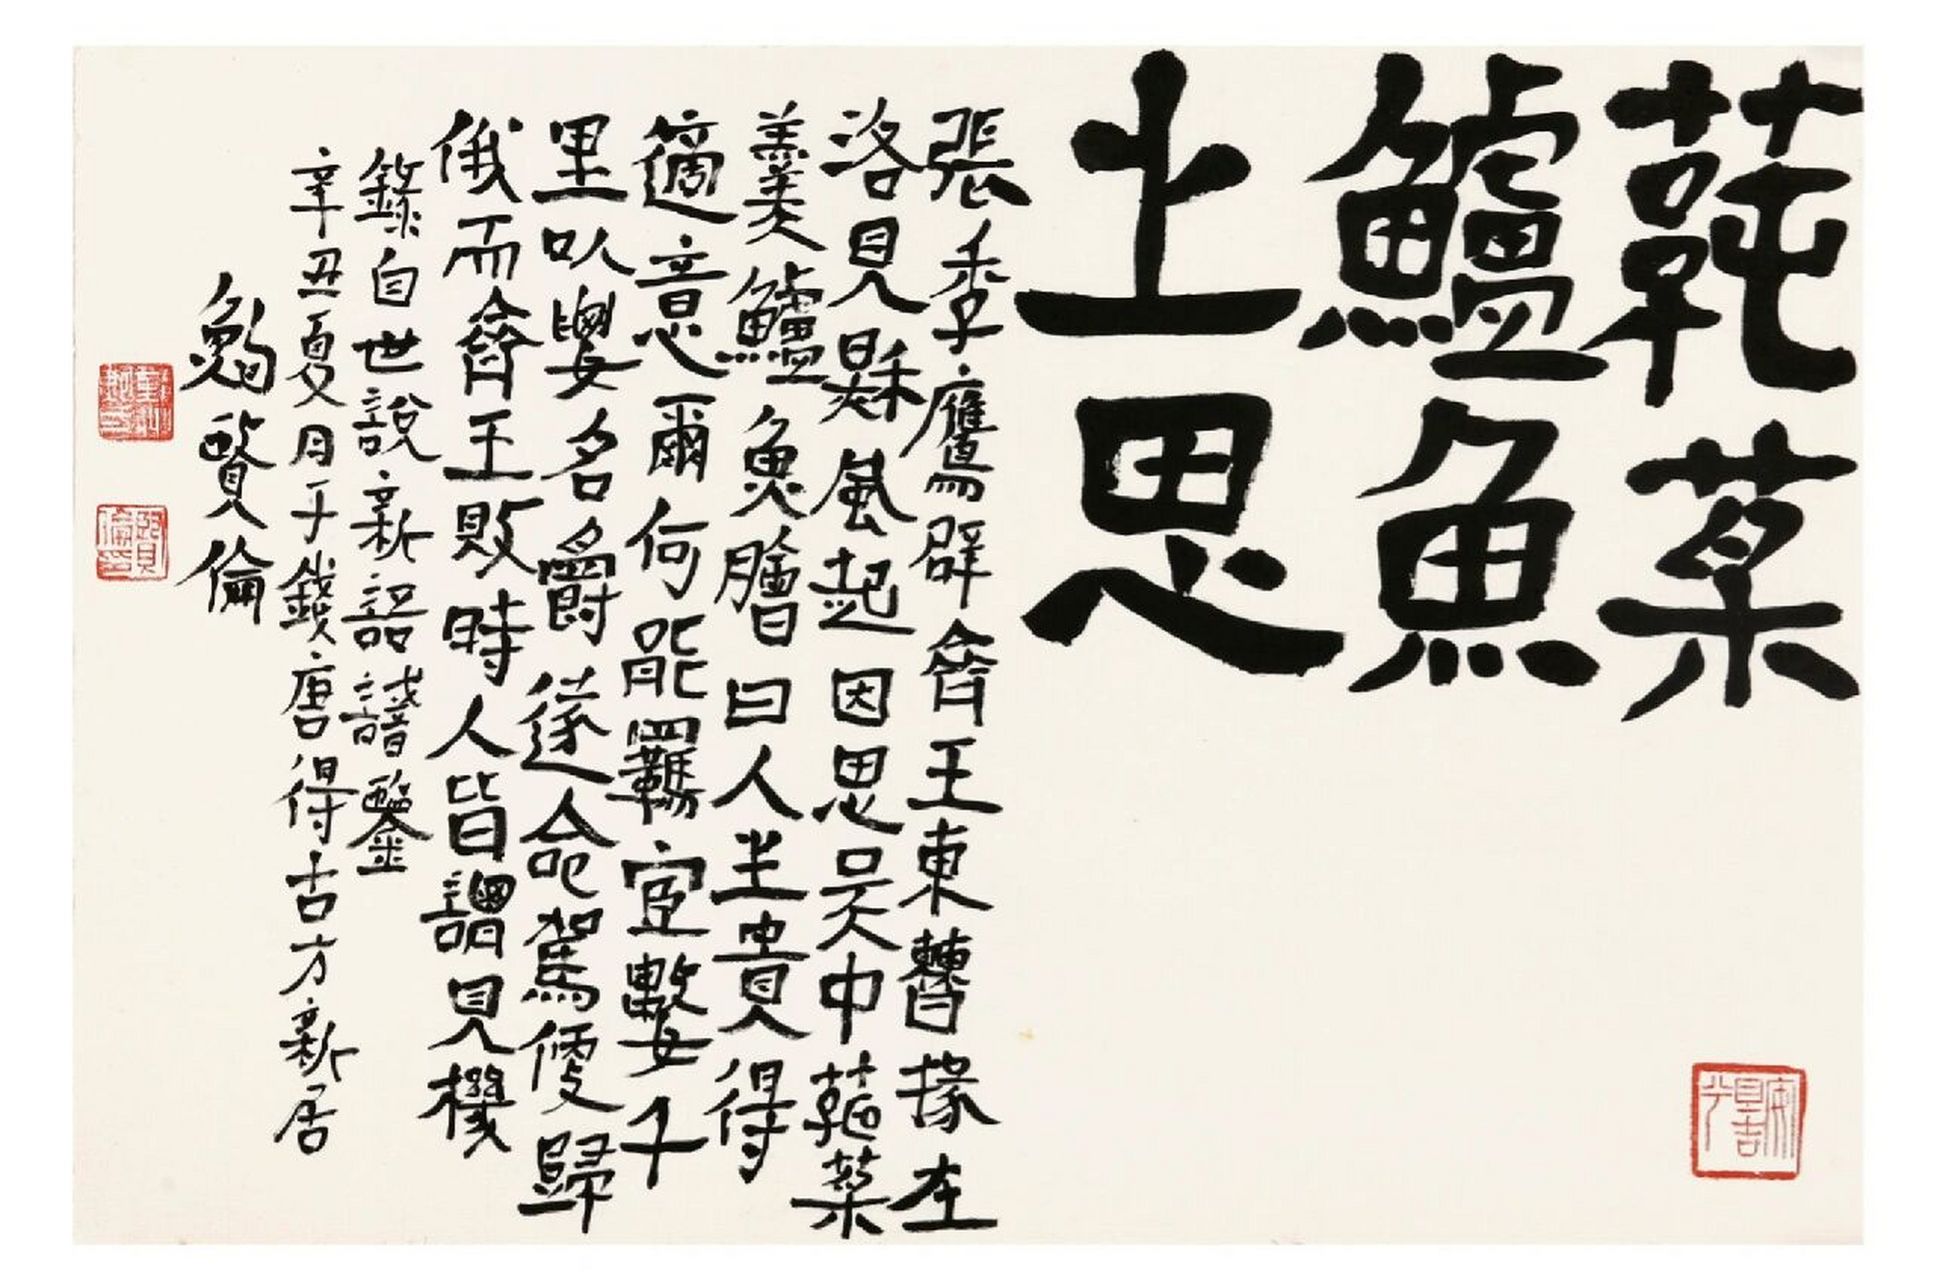 蓴菜
鱸魚
之思
張季鷹辟齊王東曹掾在
洛見秋風起因思吳中蓴菜
羹鱸魚膾曰人生貴得
適意爾何能羈宦數千
里以要名爵遂命駕便歸
俄而齊王敗時人皆謂見機
錄自世說新語識鑒
辛丑夏月于錢唐得古方新居
鮑賢倫